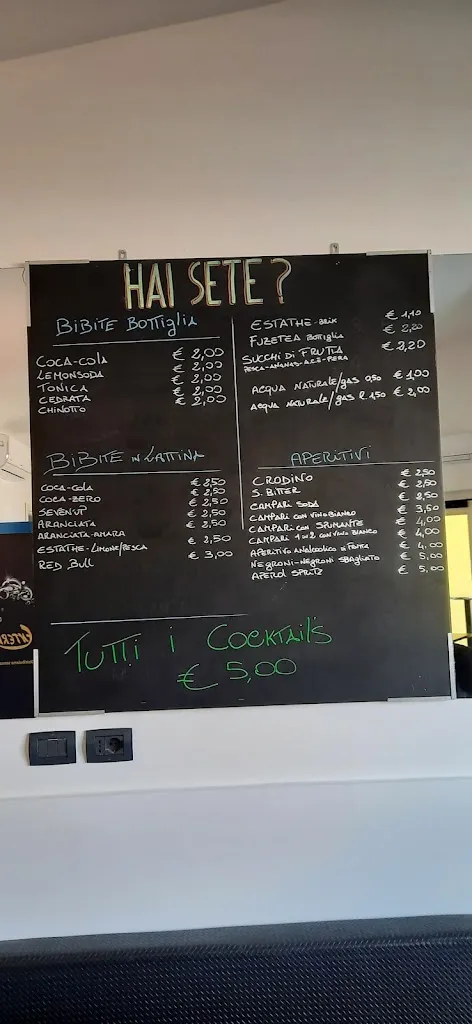 HAI SETE?
BIBITE BOTTIGLIA
COCA-COLA € 2,00
LEMONSODA € 2,00
TONICA € 2,00
CEDRATA € 2,00
CHINOTTO € 2,00
ESTATHE-BRIK € 1,10
FUZETEA BOTTIGLIA € 2,20
SUCCHI DI FRUTTA € 2,20
PESCA-ANANAS-ACE-PERA
ACQUA NATURALE/GAS 0,50 € 1,00
ACQUA NATURALE/GAS l 1,50 € 2,00
BIBITE IN LATTINA
COCA-COLA € 2,50
COCA-ZERO € 2,50
SEVENUP € 2,50
ARANCIATA € 2,50
ARANCIATA-AMARA € 2,50
ESTATHE-LIMONE/PESCA € 2,50
RED BULL € 3,00
APERITIVI
CRODINO € 2,50
S. BITTER € 2,50
CAMPARI SODA € 2,50
CAMPARI CON VINO BIANCO € 3,50
CAMPARI CON SPUMANTE € 4,00
CAMPARI CON VINO BIANCO € 4,00
APERITIVO ANALCOLICO € 4,00
NEGRONI-NEGRONI SBAGLIATO € 5,00
APEROL SPRITZ € 5,00
TUTTI I COCKTAILS
€ 5,00